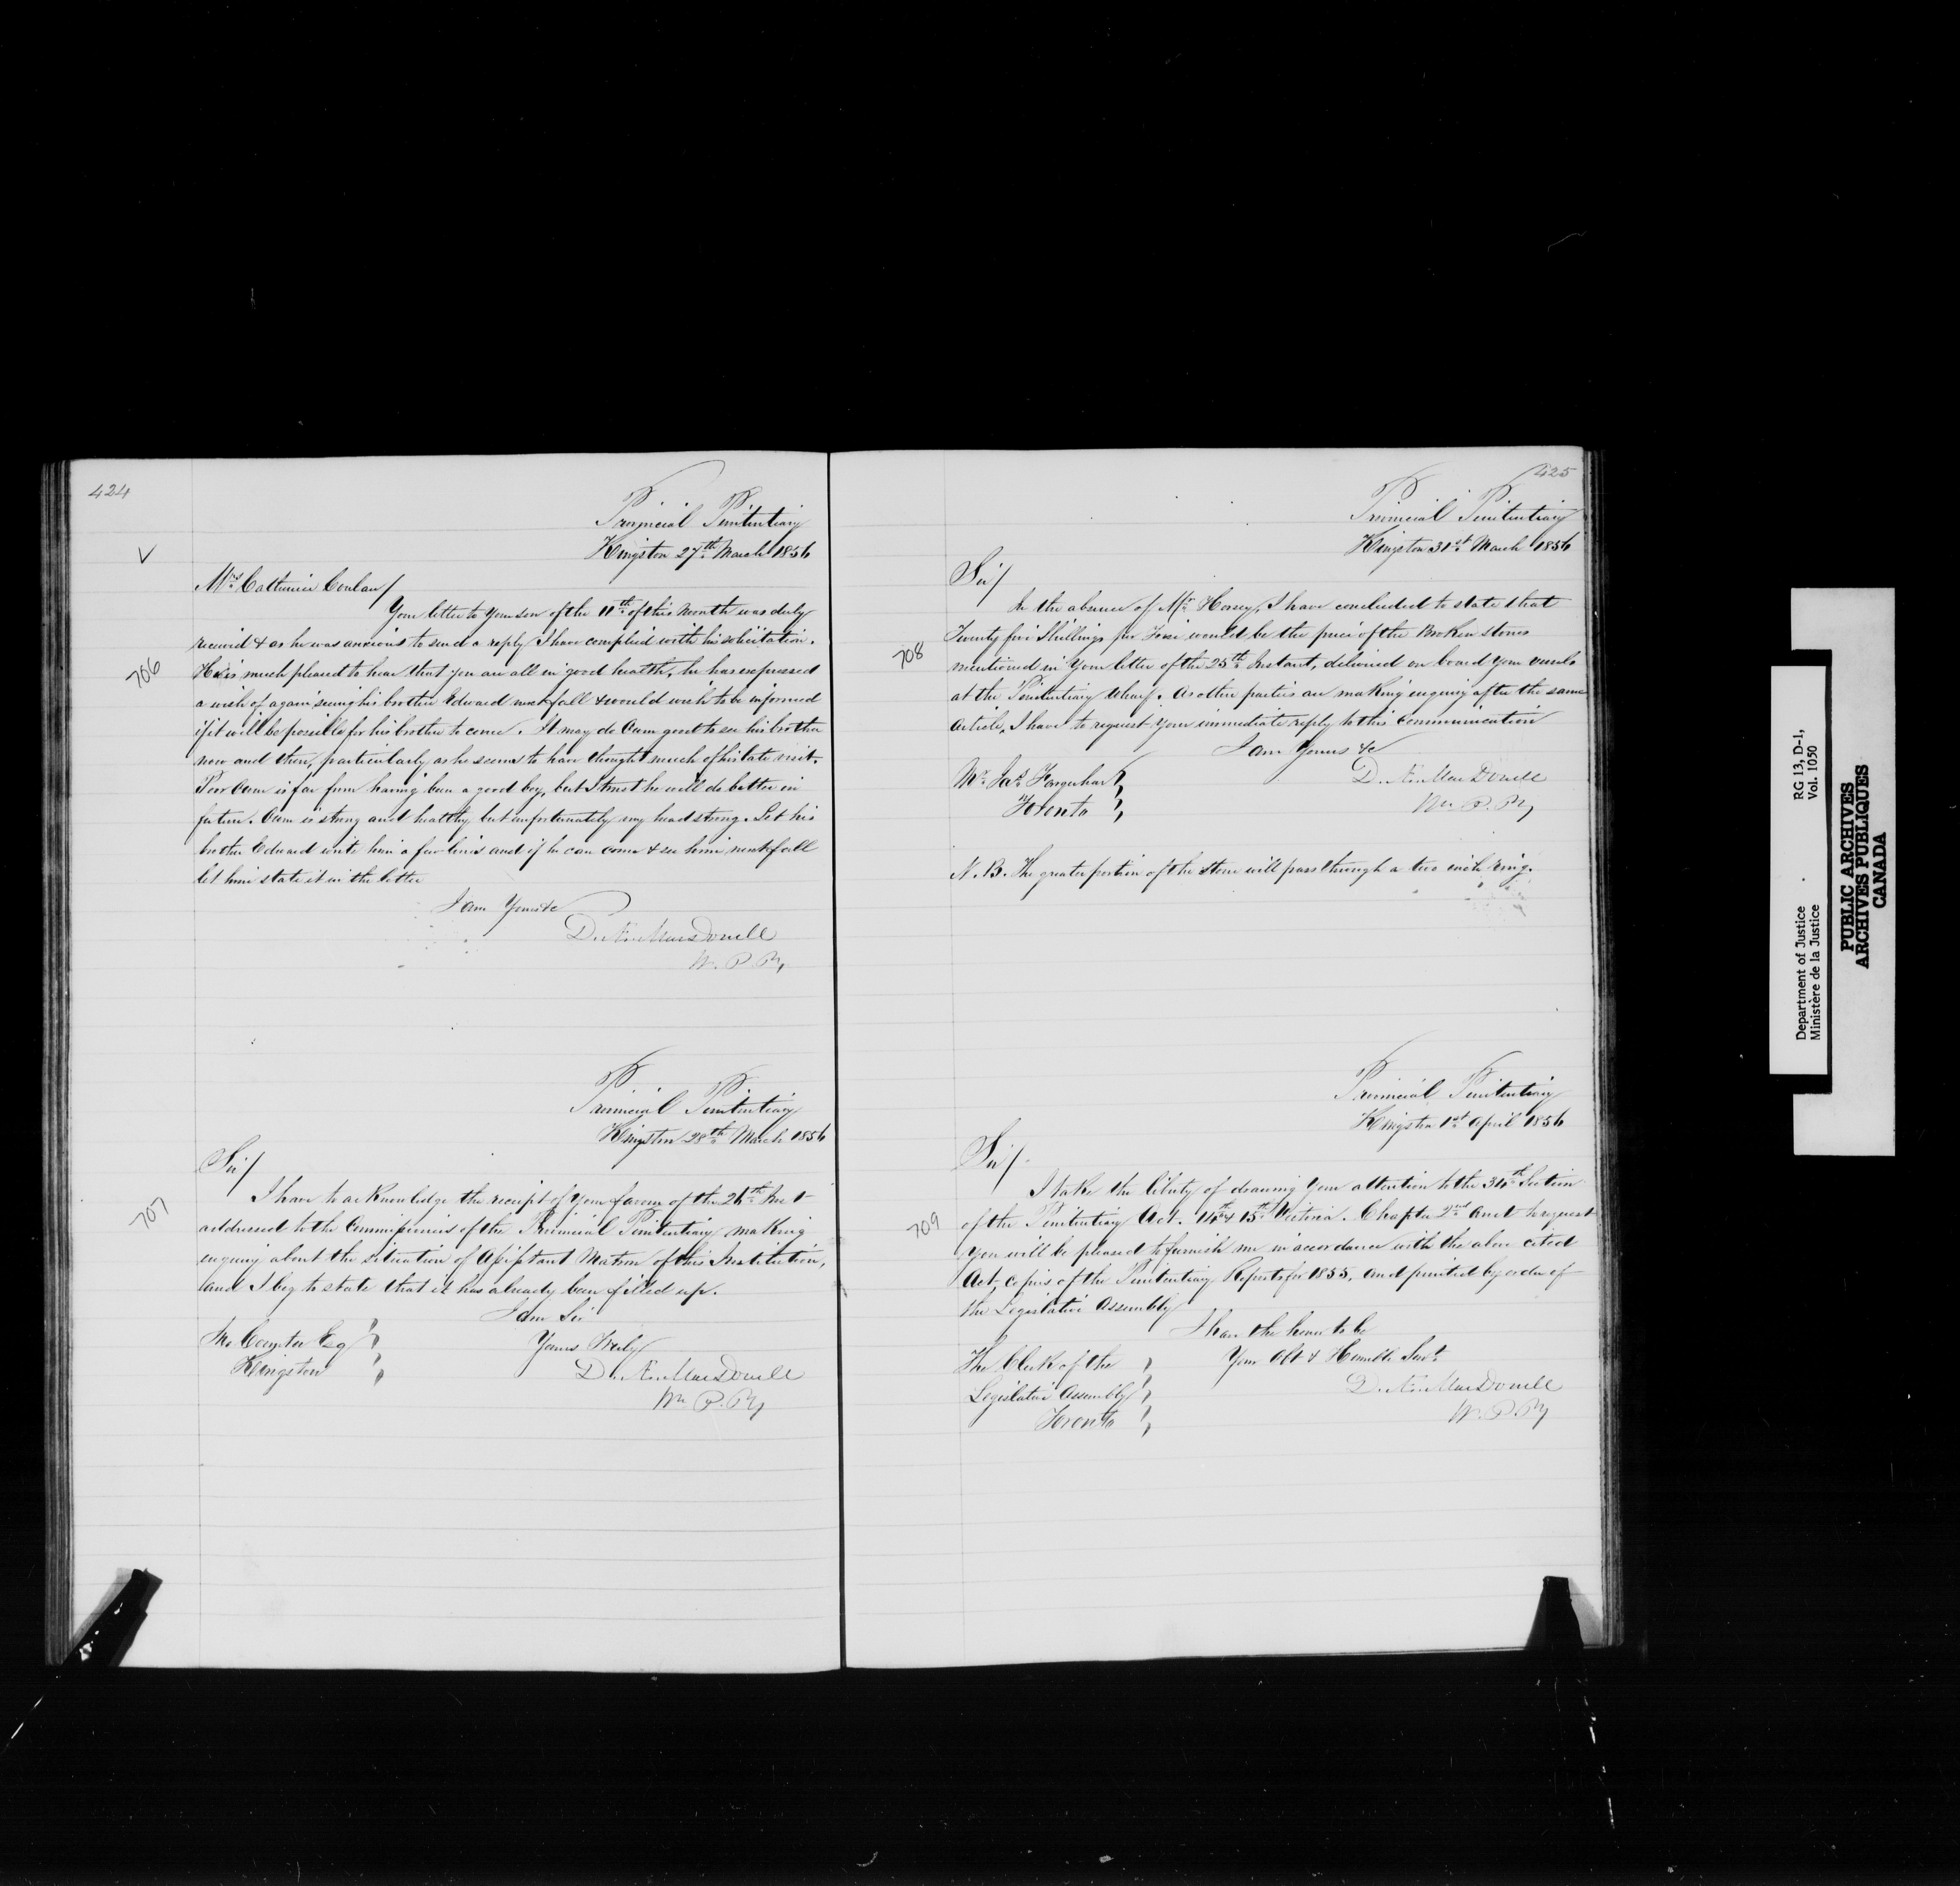 424
Provincial Penitentiary
Kingston 27th March 1856
V
Mrs Catherine Conlan/
Your letter to your son of the 11th of this month was duly
received & as he was anxious to send a reply I have complied with his solicitation.
706
He is much pleased to hear that you are all in good health, he has expressed
a wish of again seeing his brother Edward next fall & would wish to be informed
if it will be possible for his brother to come. It may do Owen good to see his brother
now and then, particularly as he seems to have thought much of his late visit.
Poor Owen is far from having been a good boy, but I trust he will do better in
future. Owen is strong and healthy but unfortunately very head strong. Let his
brother Edward write him a few lines and if he can come & see him next fall
let him state it in the letter
I am Yours &c
D. Æ. MacDonell
W. P. Py
Provincial Penitentiary
Kingston 28th March 1856
Sir/
707
I have to acknowledge the receipt of your favour of the 26th Inst
addressed to the Commissioners of the Provincial Penitentiary making
enquiry about the situation of Assistant Matron of this Institution,
and I beg to state that it has already been filled up.
I am Sir
Yours Truly
D. Æ. MacDonell
W. P. Py
Esq
Kingston
425
Provincial Penitentiary
Kingston 31st March 1856
Sir/
In the absence of Mr Horsey, I have concluded to state that
Twenty five Shillings per Toise would be the price of the Broken stones
708
mentioned in your letter of the 25th Instant, delivered on board your vessels
at the Penitentiary Wharf. As other parties are making enquiry after the same
Article, I have to request your immediate reply to this communication
I am Yours &c
D. Æ. MacDonell
W. P. Py
Mr Jas Farquhar
Toronto
N.B. The greater portion of the stone will pass through a two inch ring.
Provincial Penitentiary
Kingston 1st April 1856
Sir/
I take the liberty of drawing your attention to the 34th Section
709
of the Penitentiary Act. 14th & 15th Victoria. Chapter 2nd and to request
you will be pleased to furnish me in accordance with the above cited
Act, copies of the Penitentiary Reports for 1855, and printed by order of
the Legislative Assembly
I have the honor to be
Your Obt & Humble Servt
D. Æ. MacDonell
W. P. Py
The Clerk of the
Legislative Assembly
Toronto
Department of Justice
Ministère de la Justice
RG 13, D-1,
Vol. 1050
PUBLIC ARCHIVES
ARCHIVES PUBLIQUES
CANADA